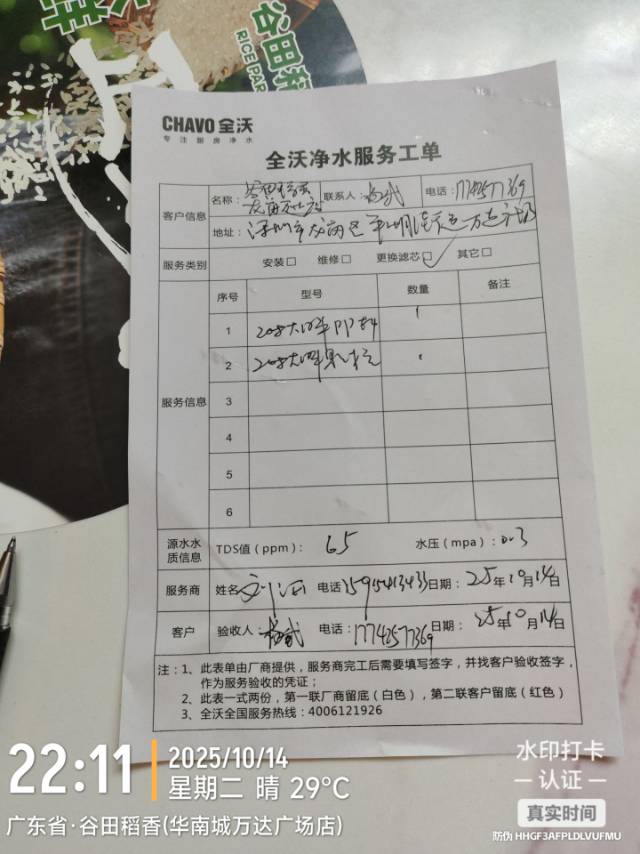 谷田稻
RICE PAR
CHAVO 全沃
专注厨房净水
全沃净水服务工单
客户信息
名称：
联系人：
电话：17743577369
地址：深圳市龙岗区
服务类别
安装□ 维修□ 更换滤芯☑ 其它□
服务信息
序号 型号 数量 备注
1 PP棉 1
2 1
3
4
5
6
源水水质信息
TDS值（ppm）：65 水压（mpa）：0.3
服务商 姓名 电话 日期：25年10月14日
客户 验收人： 电话：17743577369 日期：25年10月14日
注：1、此表单由厂商提供，服务商完工后需要填写签字，并找客户验收签字，
作为服务验收的凭证；
2、此表一式两份，第一联厂商留底（白色），第二联客户留底（红色）
3、全沃全国服务热线：4006121926
22:11
2025/10/14
星期二 晴 29°C
广东省·谷田稻香(华南城万达广场店)
水印打卡
认证
真实时间
防伪 HHGF3AFPLDLVUFMU